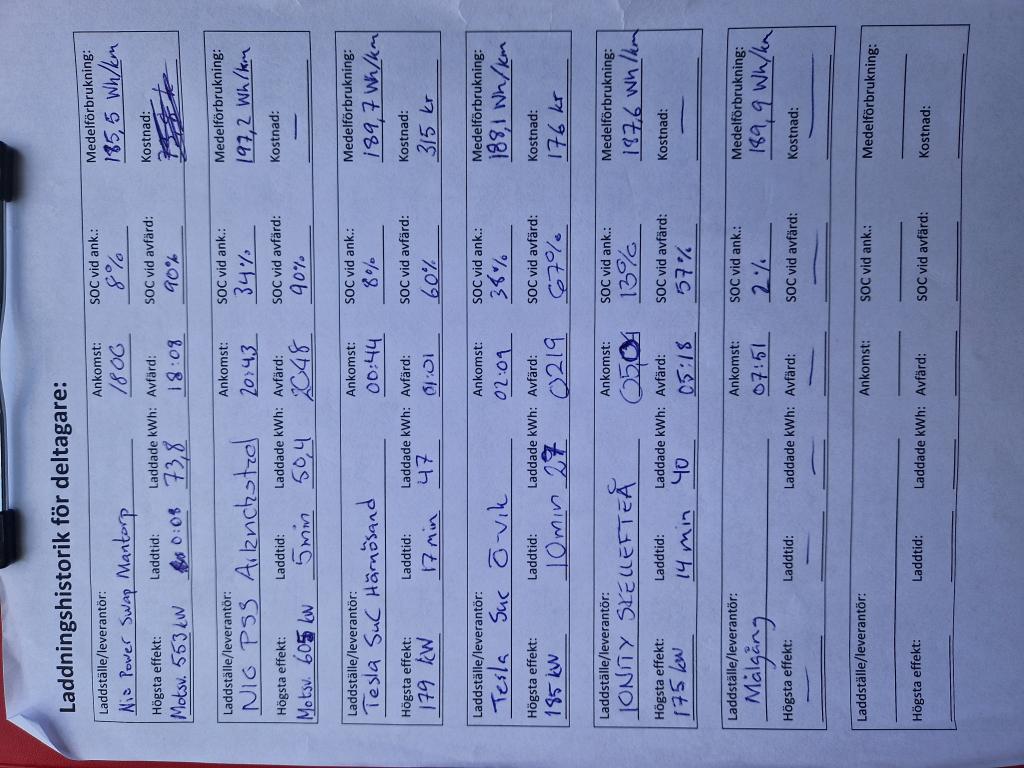 Laddningshistorik för deltagare:
Laddställe/leverantör: Ankomst: SOC vid ank.: Medelförbrukning:
Nio Power Swap Mantorp 1800 8% 185,5 Wh/km
Högsta effekt: Laddtid: Laddade kWh: Avfärd: SOC vid avfärd: Kostnad:
Motsv. 553 kW 0:08 73,8 18:08 90%
Laddställe/leverantör: Ankomst: SOC vid ank.: Medelförbrukning:
NIO PSS 20:43 34% 197,2 Wh/km
Högsta effekt: Laddtid: Laddade kWh: Avfärd: SOC vid avfärd: Kostnad:
Motsv. 605 kW 5min 50,4 2048 90% —
Laddställe/leverantör: Ankomst: SOC vid ank.: Medelförbrukning:
Tesla SuC Härnösand 00:44 8% 189,7 Wh/km
Högsta effekt: Laddtid: Laddade kWh: Avfärd: SOC vid avfärd: Kostnad:
179 kW 17min 47 01:01 60% 315 kr
Laddställe/leverantör: Ankomst: SOC vid ank.: Medelförbrukning:
Tesla Suc Ö-vik 02:09 38% 188,1 Wh/km
Högsta effekt: Laddtid: Laddade kWh: Avfärd: SOC vid avfärd: Kostnad:
185 kW 10min 27 0219 67% 176 kr
Laddställe/leverantör: Ankomst: SOC vid ank.: Medelförbrukning:
IONITY SKELLEFTEÅ 0504 13% 187,6 Wh/km
Högsta effekt: Laddtid: Laddade kWh: Avfärd: SOC vid avfärd: Kostnad:
175 kW 14 min 40 05:18 57% —
Laddställe/leverantör: Ankomst: SOC vid ank.: Medelförbrukning:
Målgång 07:51 2% 189,9 Wh/km
Högsta effekt: Laddtid: Laddade kWh: Avfärd: SOC vid avfärd: Kostnad:
— — — — — —
Laddställe/leverantör: Ankomst: SOC vid ank.: Medelförbrukning:
Högsta effekt: Laddtid: Laddade kWh: Avfärd: SOC vid avfärd: Kostnad: